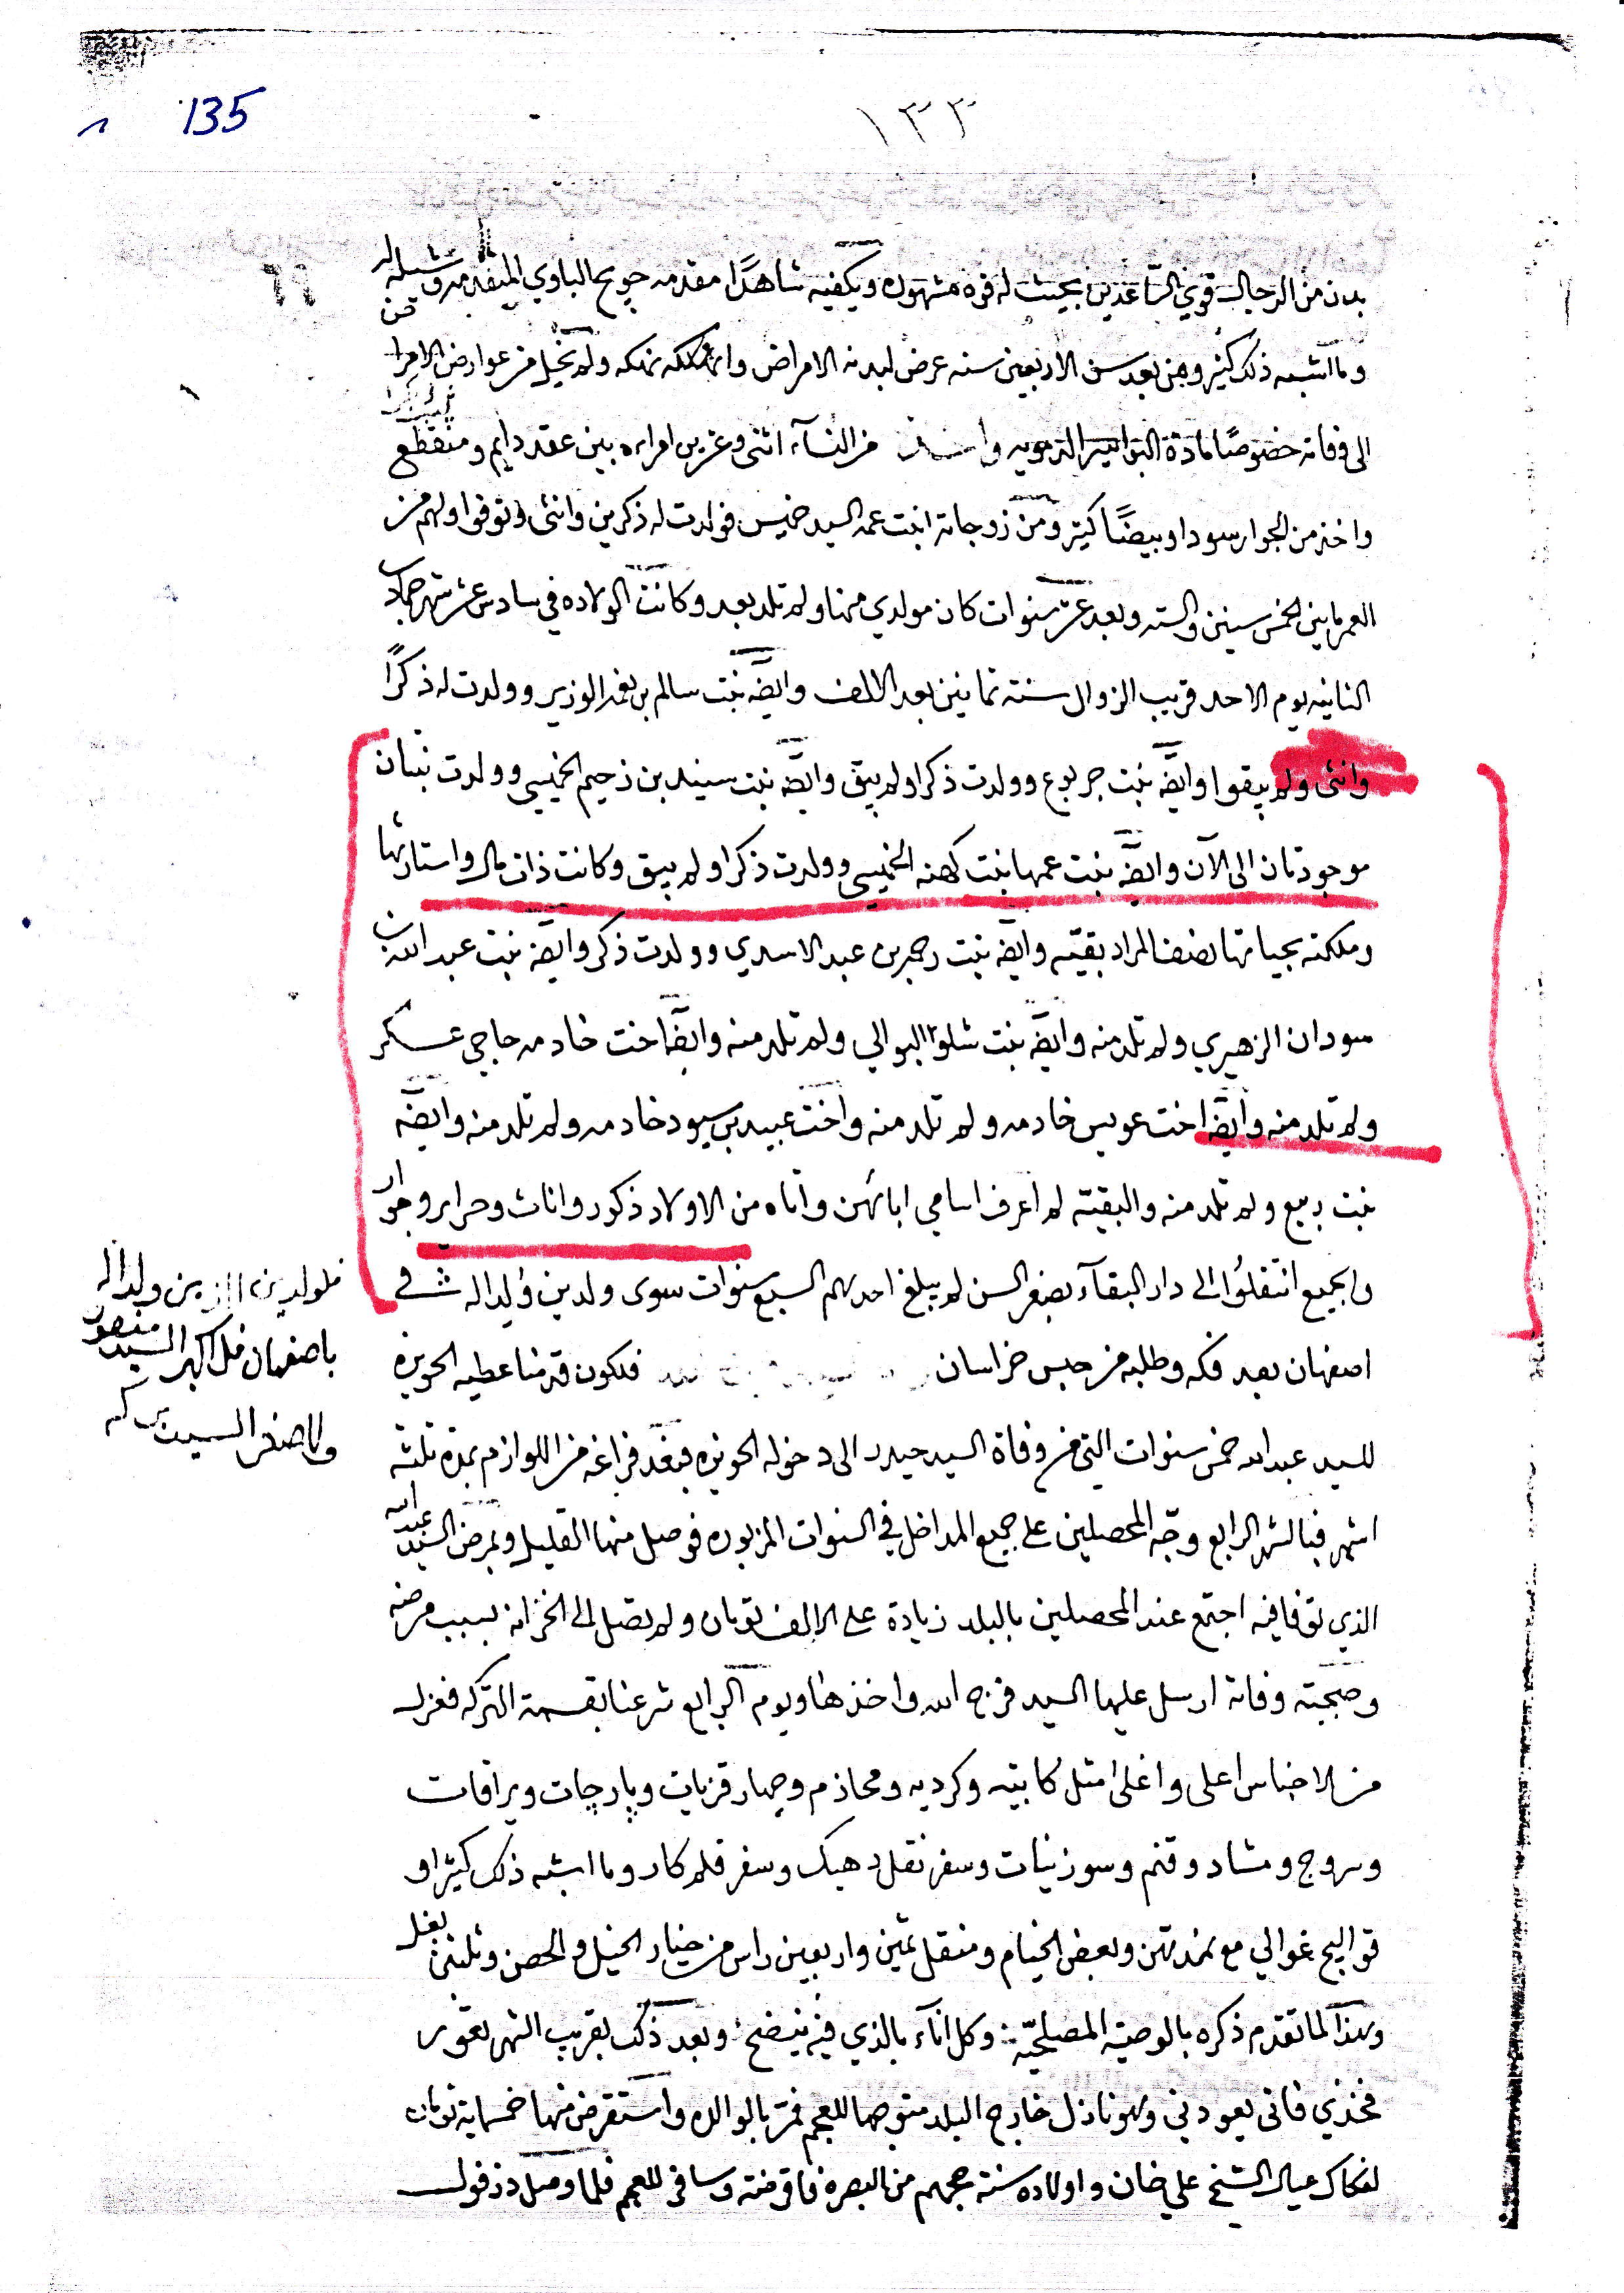 135
١٣٣
بدن من الرجال قوي الساعدين بحيث له قوه مشهوره ويكفيه شاهدًا مقدمه جويح الباوي المتقدمه وشيله له
وما اشبه ذلك كثير ومن بعد سن الاربعين سنه عرض لبدنه الامراض ولم يخيل من عوارض الامرا
الى وفاته خصوصًا مادة البواسير الدمويه من النسآء اثنى وعشرين امراه بين عقد دايم ومنقطع
واخذ من الجوار سودا وبيضًا كثير ومن زوجاته ابنت عمه السيد خميس فولدت له ذكرين وانثى وتوفوا ولهم من
العمر مابين الخمس سنين والسته وبعد عشر سنوات كان مولدي منها ولم تلد بعد وكانت الولاده في سادس عشر شهر جماد
الثانيه يوم الاحد قريب الزوال سنة ثمانين بعد الالف وايضه بنت سالم بن نعمه الوزير وولدت له ذكرًا
وانثى ولم يبقوا وايضه بنت جربوع وولدت ذكرا ولم يبق وايضه بنت سنيد بن زحيم الخميسي وولدت بنتان
موجودتان الى الآن وايضه بنت عمها بنت كهنه الخميسي وولدت ذكرا ولم يبق وكانت ذات مال واستارثها
وملكته بحياتها نصف المراد بقيته وايضه بنت رحمه بن عبد الاسدي وولدت ذكر وايضه بنت عبد الله بن
سودان الزهيري ولم تلد منه وايضه بنت شلوا البوالي ولم تلد منه وايضا اخت خادمه حاجي عسكر
ولم تلد منه وايضه اخت عويس خادمه ولم تلد منه واخت عبيد بن سيود خادمه ولم تلد منه وايضه
بنت ربيع ولم تلد منه والبقيته لم اعرف اسامي ابائهن واتاه من الاولاد ذكور واناث وحراير وجوار
والجميع انتقلوا الى دار البقآء بصغر السن لم يبلغ احدهم السبع سنوات سوى ولدين ولدا له في
اصفهان بعد فكه وطلبه من حبس خراسان فلكون قد منا عطيه الحويزه
للسيد عبد الله خمس سنوات التي من وفاة السيد حيدر الى دخوله الحويزه فبعد فراغه من اللوازم بمدة ثلثة
اشهر فبالشهر الرابع وجّه المحصلين على جميع المداخل في السنوات المزبوره فوصل منها القليل وبمرض السيد عبد الله
الذي توفا فيه اجتمع عند المحصلين بالبلد زيادة على الالف تومان ولم تصل الى الخزانه بسبب مرضه
وصبحية وفاته ارسل عليها السيد فرج الله واخذها ويوم الرابع شرعنا بقسمة التركه فعزل
من الاجناس اعلى واغلى مثل كابتيه وكرديه ومحازم وچهار قزيات وپارچات ويراقات
وسروج ومشاد وقنم وسوزنيات وسفر نقل دهيك وسفر قلم كار وما اشبه ذلك كثيرا و
قواليچ غوالي مع نمدتهن وبعض الخيام ومنقل ثمين واربعين راس من خيار الخيل والحصن وثلثين بغل
وهذا لما تقدم ذكره بالوصيته المصلحيّه وكل انآء بالذي فيه ينضح وبعد ذلك بقريب الشهر تعوّر
فخذي فاتى يعودني وهو نازل خارج البلد متوجها للعجم فمرّ بالوالده واستقرض منها خمسماية تومان
لفكاك عيال الشيخ علي خان واولاده سنة حجهم من البصره فاقرضته وسافر للعجم فلما وصل دزفول
ولدا له
باصفهان الاكبر السيد منصور
والاصغر السيد بركه